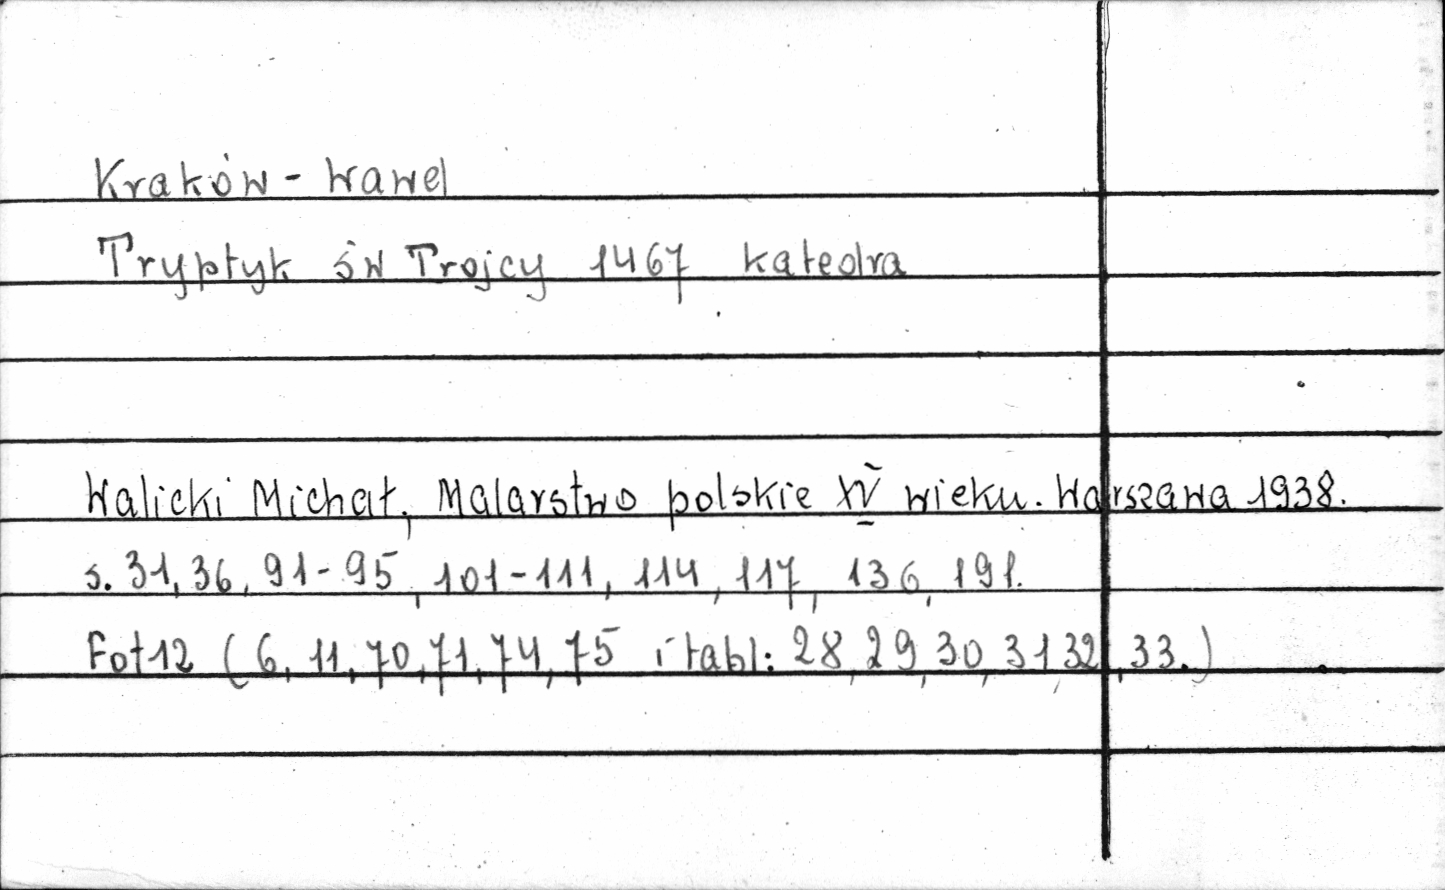 Kraków - Wawel
Tryptyk św Trojcy 1467 katedra
Walicki Michał, Malarstwo polskie XV wieku. Warszawa 1938.
s. 31, 36, 91-95, 101-111, 114, 117, 136, 191.
Fot 12 (6, 11, 70, 71, 74, 75 i tabl: 28, 29, 30, 31, 32, 33.)